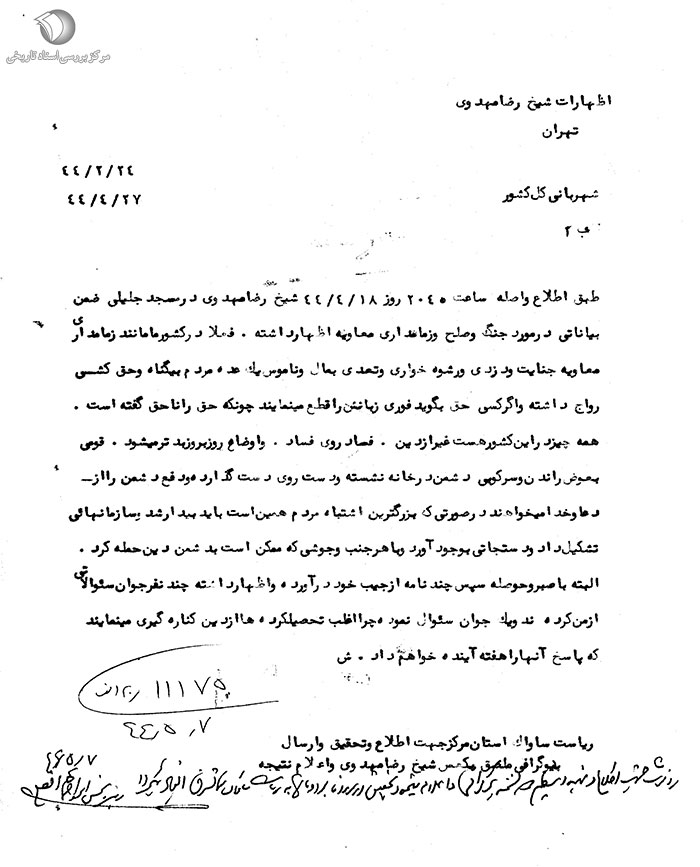 مرکز بررسی اسناد تاریخی
اظهارات شیخ رضا مهدوی
تهران
٤٤/٢/٢٤
٤٤/٤/٢٧
شهربانی کل کشور
ب ٢
طبق اطلاع واصله ساعت ٢٠٤٥ روز ٤٤/٤/١٨ شیخ رضا مهدوی در مسجد جلیلی ضمن
بیاناتی در مورد جنگ و صلح و زمامداری معاویه اظهار داشته . فعلا در کشور ما مانند زمامداری
معاویه جنایت و دزدی و رشوه خواری و تعدی بمال و ناموس یك عده مردم بیگناه و حق کشی
رواج داشته و اگر کسی حق بگوید فوری زبانش را قطع مینمایند چونکه حق را ناحق گفته است .
همه چیز در این کشور هست غیر از دین . فساد روی فساد . و اوضاع روز بروز بد تر میشود . قومی
بعوض راندن و سرکوبی دشمن در خانه نشسته و دست روی دست گذارده و دفع دشمن را از ـ
دعا و خدا میخواهند در صورتی که بزرگترین اشتباه مردم همین است باید بیدار شد و سازمانهائی
تشکیل داد و دستجاتی بوجود آورد و با هر جنب و جوشی که ممکن است بدشمن دین حمله کرد .
البته با صبر و حوصله سپس چند نامه از جیب خود در آورده و اظهار داشته چند نفر جوان سئوالاتی
از من کرده اند و یك جوان سئوال نموده چرا اغلب تحصیلکرده ها از دین کناره گیری مینمایند
که پاسخ آنها را هفته آینده خواهم داد . ش
١١١٧٥
٤٤/٥/٧
ریاست ساواك استان مرکز جهت اطلاع و تحقیق و ارسال
بیوگرافی ملصق بعکس شیخ رضا مهدوی و اعلام نتیجه